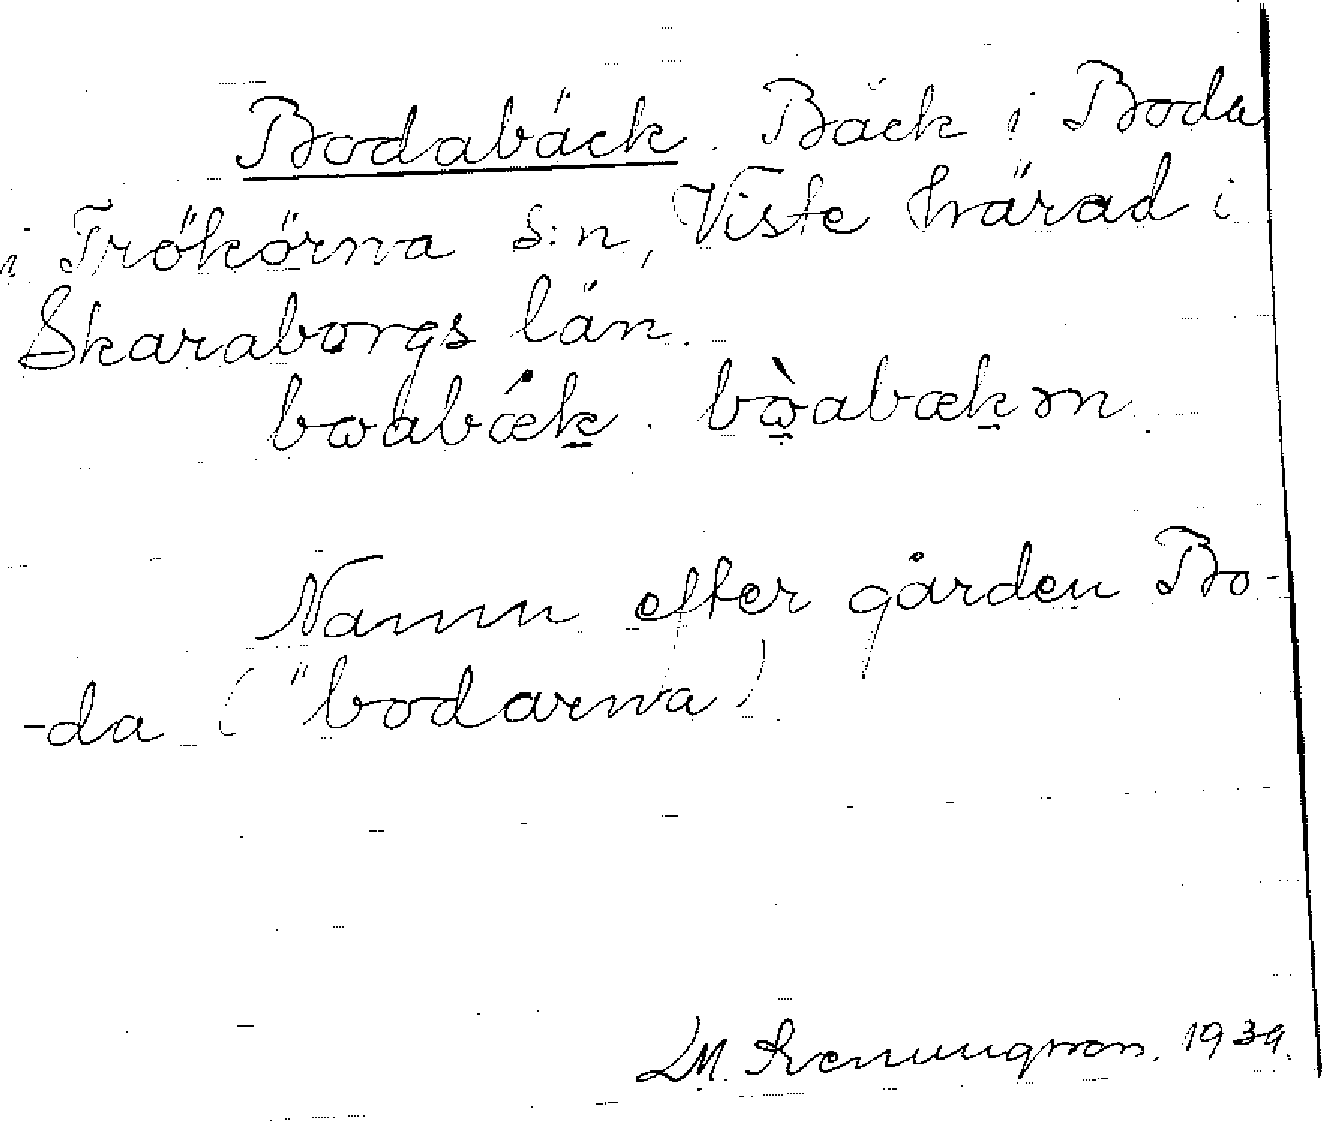 Bodabäck. Bäck i Boda
i Trökörna s:n, Viste härad i
Skaraborgs län.
boabæk. bòabækən
Namn efter gården Bo-
-da ("bodarna)
1939.